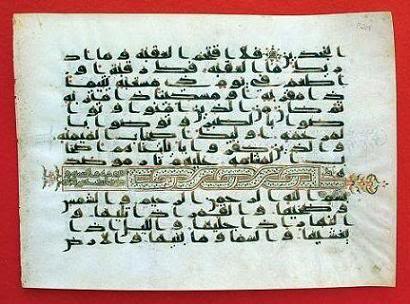 النجدين فلا اقتحم العقبة وما ادر
يك ما العقبة فك رقبة او
اطعم في يوم ذي مسغبة يتيما
ذا مقربة او مسكينا ذا متربة
ثم كان من الذين امنوا وتوا
صوا بالصبر وتواصوا با
لمرحمة اولئك اصحب الميمنة
والذين كفروا بايتنا هم ا
صحب المشئمة عليهم نار موصد
ة
بسم الله الرحمن الرحيم والشمس
وضحيها والقمر اذا تليها و
النهار اذا جليها واليل اذا
يغشيها والسما وما بنيها والارض